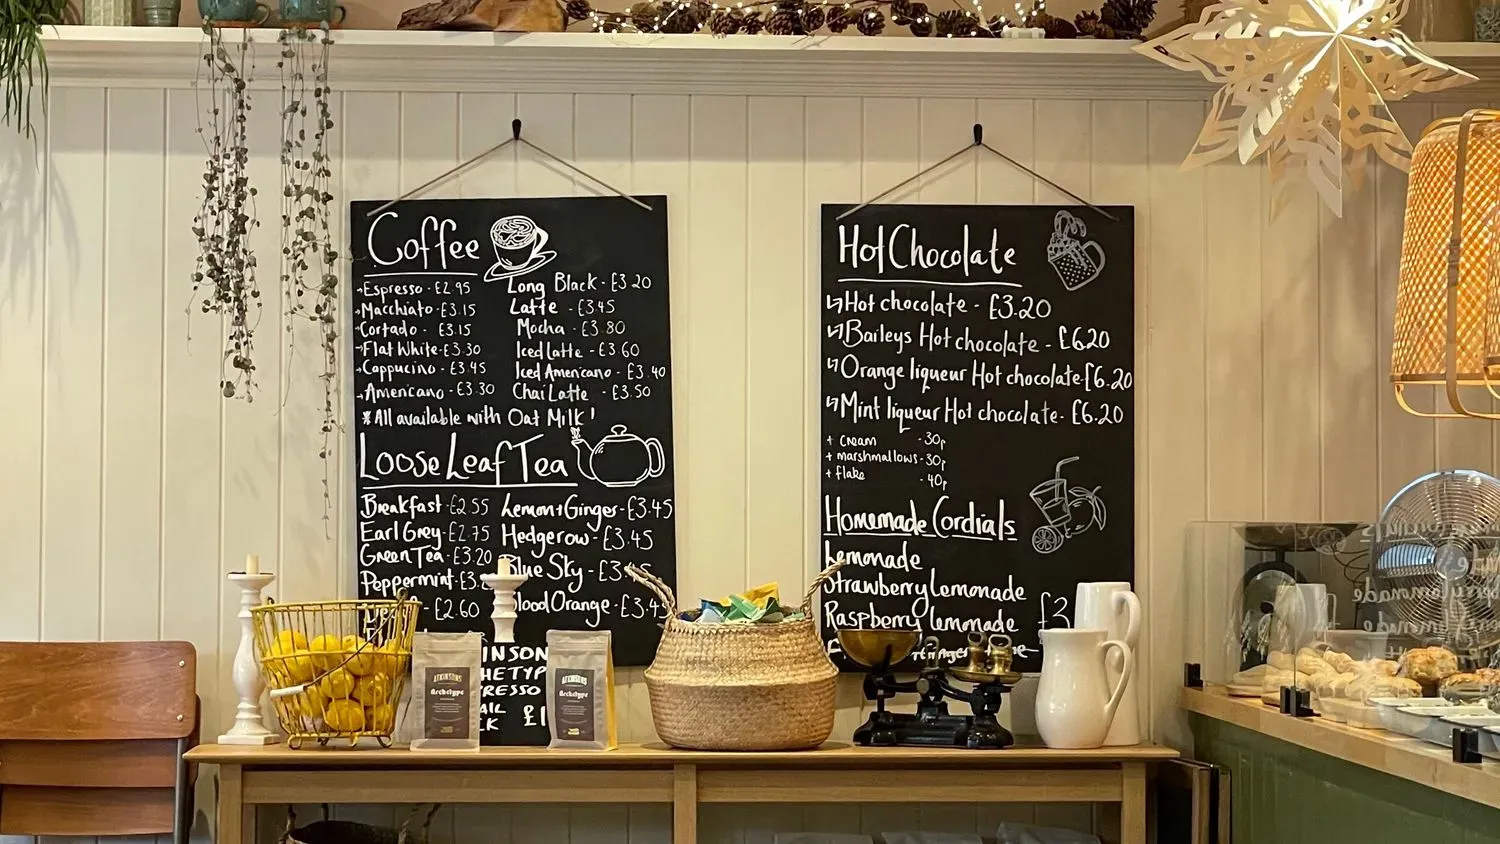 Coffee
→Espresso · £2.95
→Macchiato · £3.15
→Cortado · £3.15
→Flat White · £3.30
→Cappucino · £3.45
→Americano · £3.30
Long Black - £3.20
Latte - £3.45
Mocha - £3.80
Iced Latte - £3.60
Iced Americano - £3.40
Chai Latte - £3.50
*All available with Oat Milk!
Loose Leaf Tea
Breakfast · £2.55
Earl Grey · £2.75
Green Tea · £3.20
Peppermint · £3.
- £2.60
Lemon+Ginger - £3.45
Hedgerow - £3.45
Blue Sky - £3.45
Blood Orange - £3.45
Hot Chocolate
↳Hot chocolate - £3.20
↳Baileys Hot chocolate - £6.20
↳Orange liqueur Hot chocolate - £6.20
↳Mint liqueur Hot chocolate - £6.20
+ cream - 30p
+ marshmallows - 30p
+ flake - 40p
Homemade Cordials
Lemonade
Strawberry Lemonade
Raspberry Lemonade
£3
ATKINSONS
Archetype
ATKINSONS
Archetype